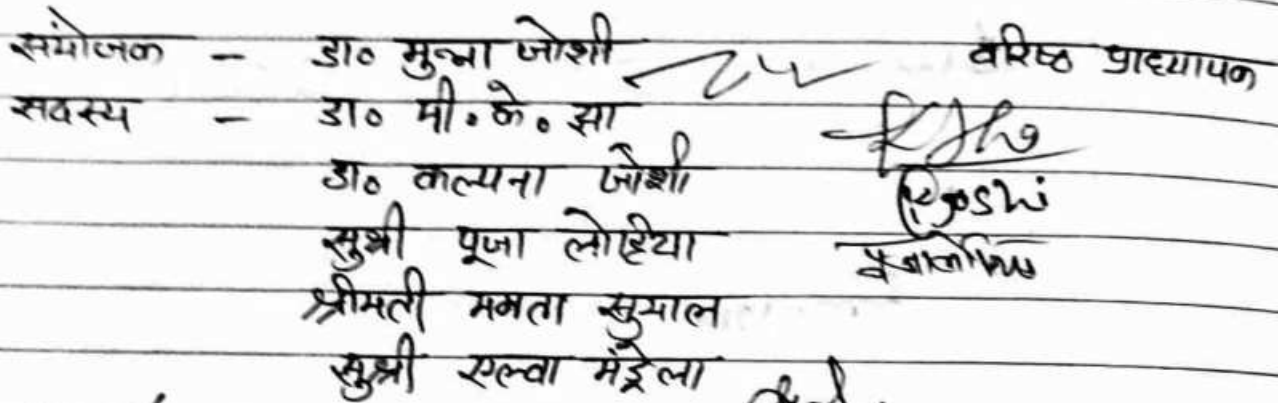 संयोजक - डा० मुन्ना जोशी वरिष्ठ प्राध्यापक
सदस्य - डा० पी.के. झा
डा० कल्पना जोशी KJoshi
सुश्री पूजा लोहिया
श्रीमती ममता सुयाल
सुश्री एल्वा मंड्रेला